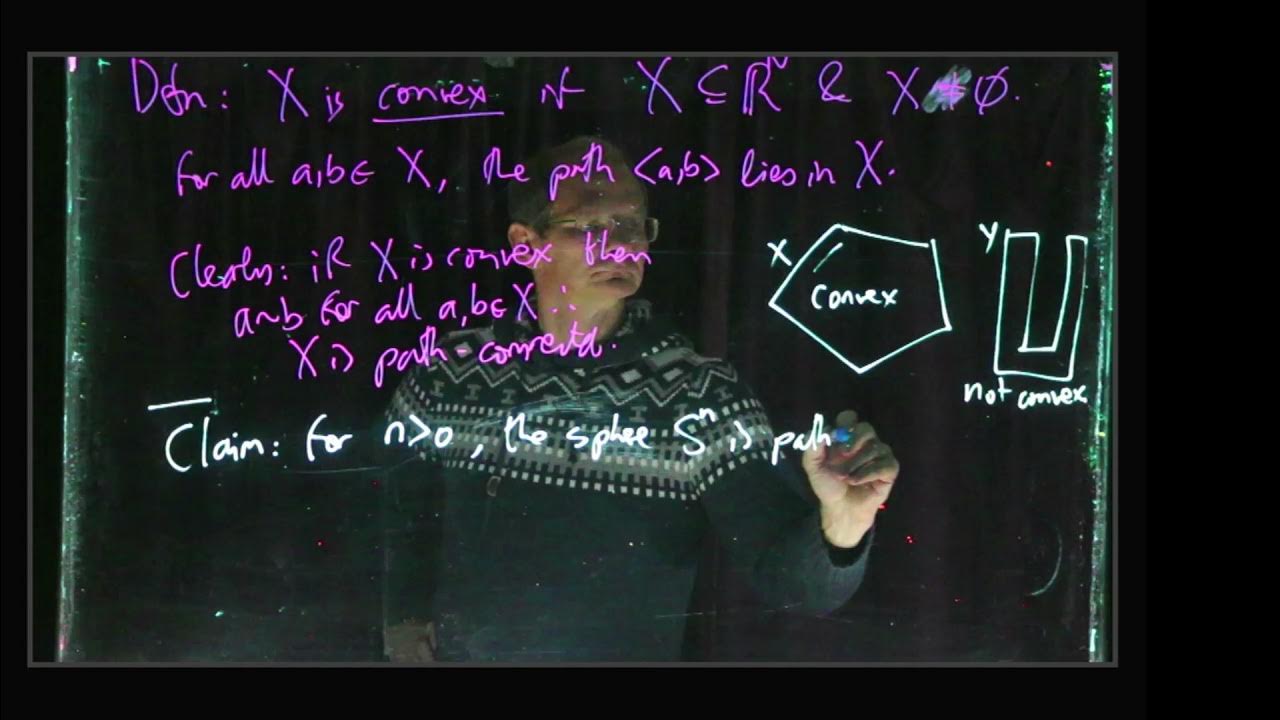 Defn: X is convex if X ⊆ ℝᴺ & X ≠ ∅.
for all a,b ∈ X, the path <a,b> lies in X.
Clearly: if X is convex then
a~b for all a,b ∈ X ∴
X is path-connected.
X
convex
Y
not convex
Claim: for n>0, the sphere Sⁿ is path